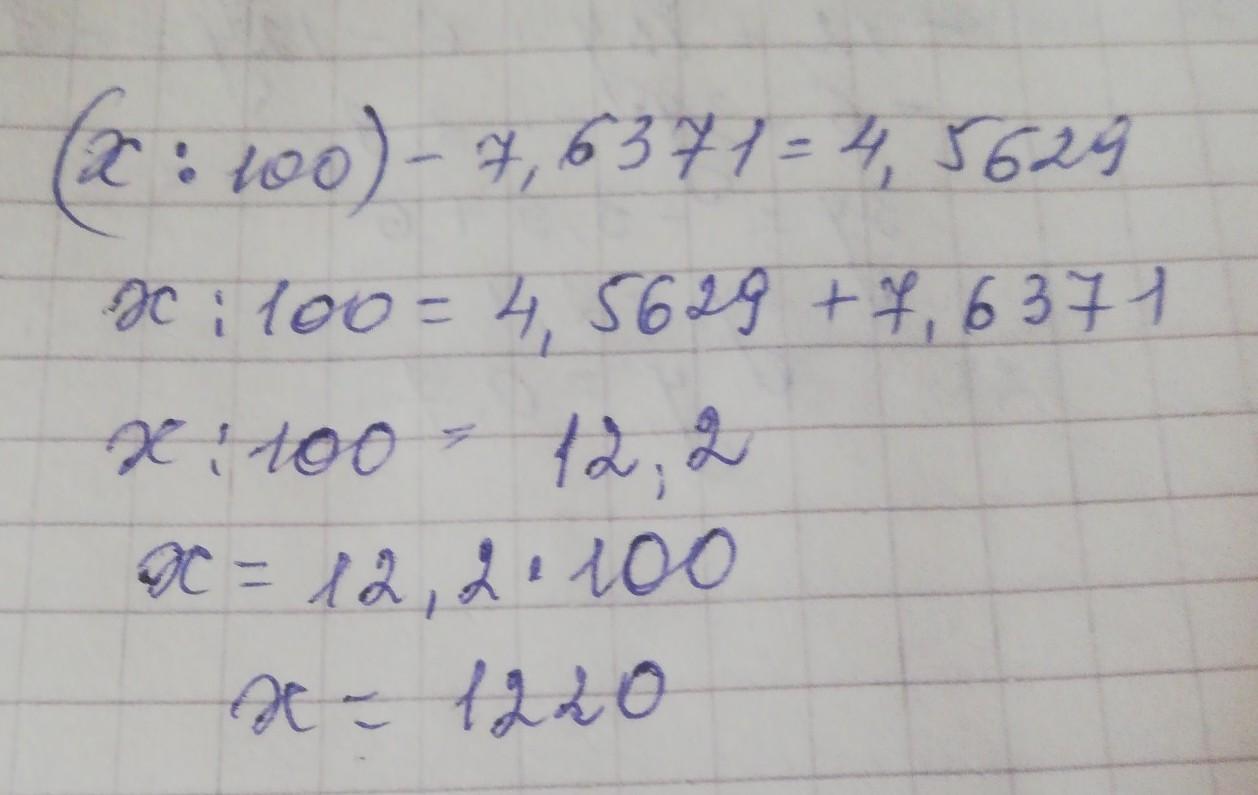 (x : 100) - 7,6371 = 4,5629
x : 100 = 4,5629 + 7,6371
x : 100 = 12,2
x = 12,2 · 100
x = 1220